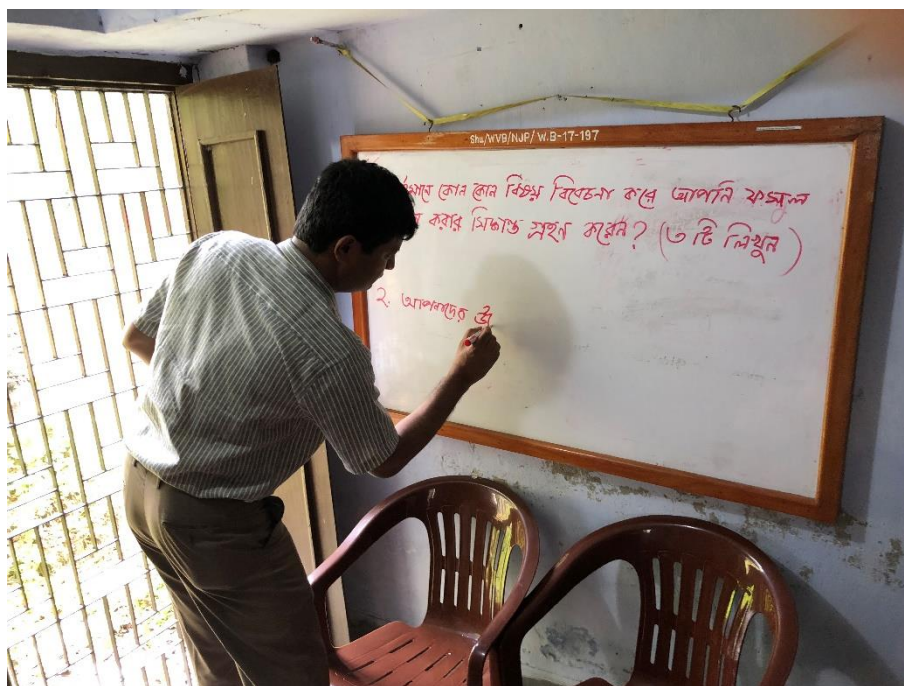 Sha/WVB/NJP/W.B-17-197
কোন কোন বিষয় বিবেচনা করে আপনি ফসল
করার সিদ্ধান্ত গ্রহণ করেন? (৩ টি লিখুন)
২. আপনাদের উ